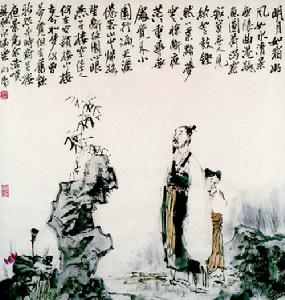 明月如霜好
風如水清景
無限曲港跳
魚圓荷瀉露
寂寞無人見
紞如三鼓鏗
然一葉黯黯夢
雲驚斷夜茫
茫重尋無
處覺來小
園行遍天涯
倦客山中歸路
望斷故園心眼
燕子樓空佳人
何在空鎖樓中
燕古今如夢
何曾夢覺但有舊歡
新怨異時對
黃樓夜景
為余浩歎